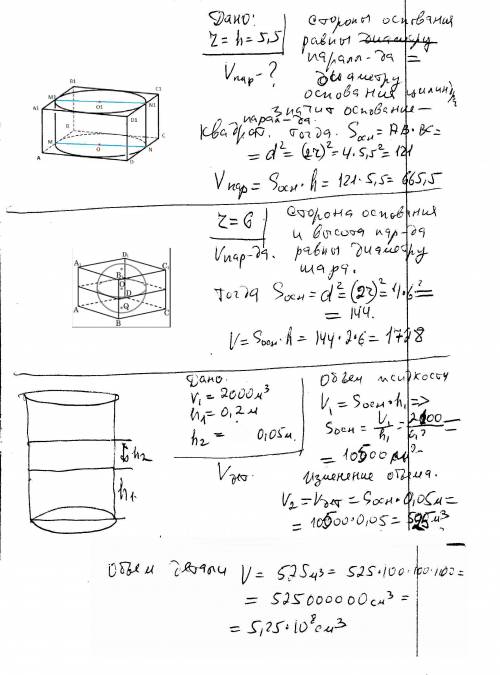 Дано:
r = h = 5,5
Vпар - ?
Стороны основания
равны диаметру
паралл-да =
диаметру
основания цилиндра
значит основание —
парал-да.
квадрат. Тогда Sосн = AB·BC =
= d² = (2r)² = 4·5,5² = 121
Vпар = Sосн·h = 121·5,5 = 665,5
B1
C1
M1
O1
N1
A1
D1
B
C
M
O
N
A
D
r = 6
Vпар-да.
Сторона основания
и высота пар-да
равны диаметру
шара.
Тогда Sосн = d² = (2r)² = 4·6² =
= 144.
V = Sосн·h = 144·2·6 = 1728
D1
A1
C1
B1
O
D
A
Q
C
B
Дано:
V1 = 2000м³
h1 = 0,2 м
h2 = 0,05м.
Vдет.
h2
h1
Объем жидкости
V1 = Sосн·h1 =>
Sосн = V1/h1 =
изменение объема.
V2 = Vдет = Sосн·0,05м =
= 10500·0,05 = 525м³
Объем детали V = 525м³ = 525·100·100·100 =
= 525000000см³ =
= 5,25·10⁸см³